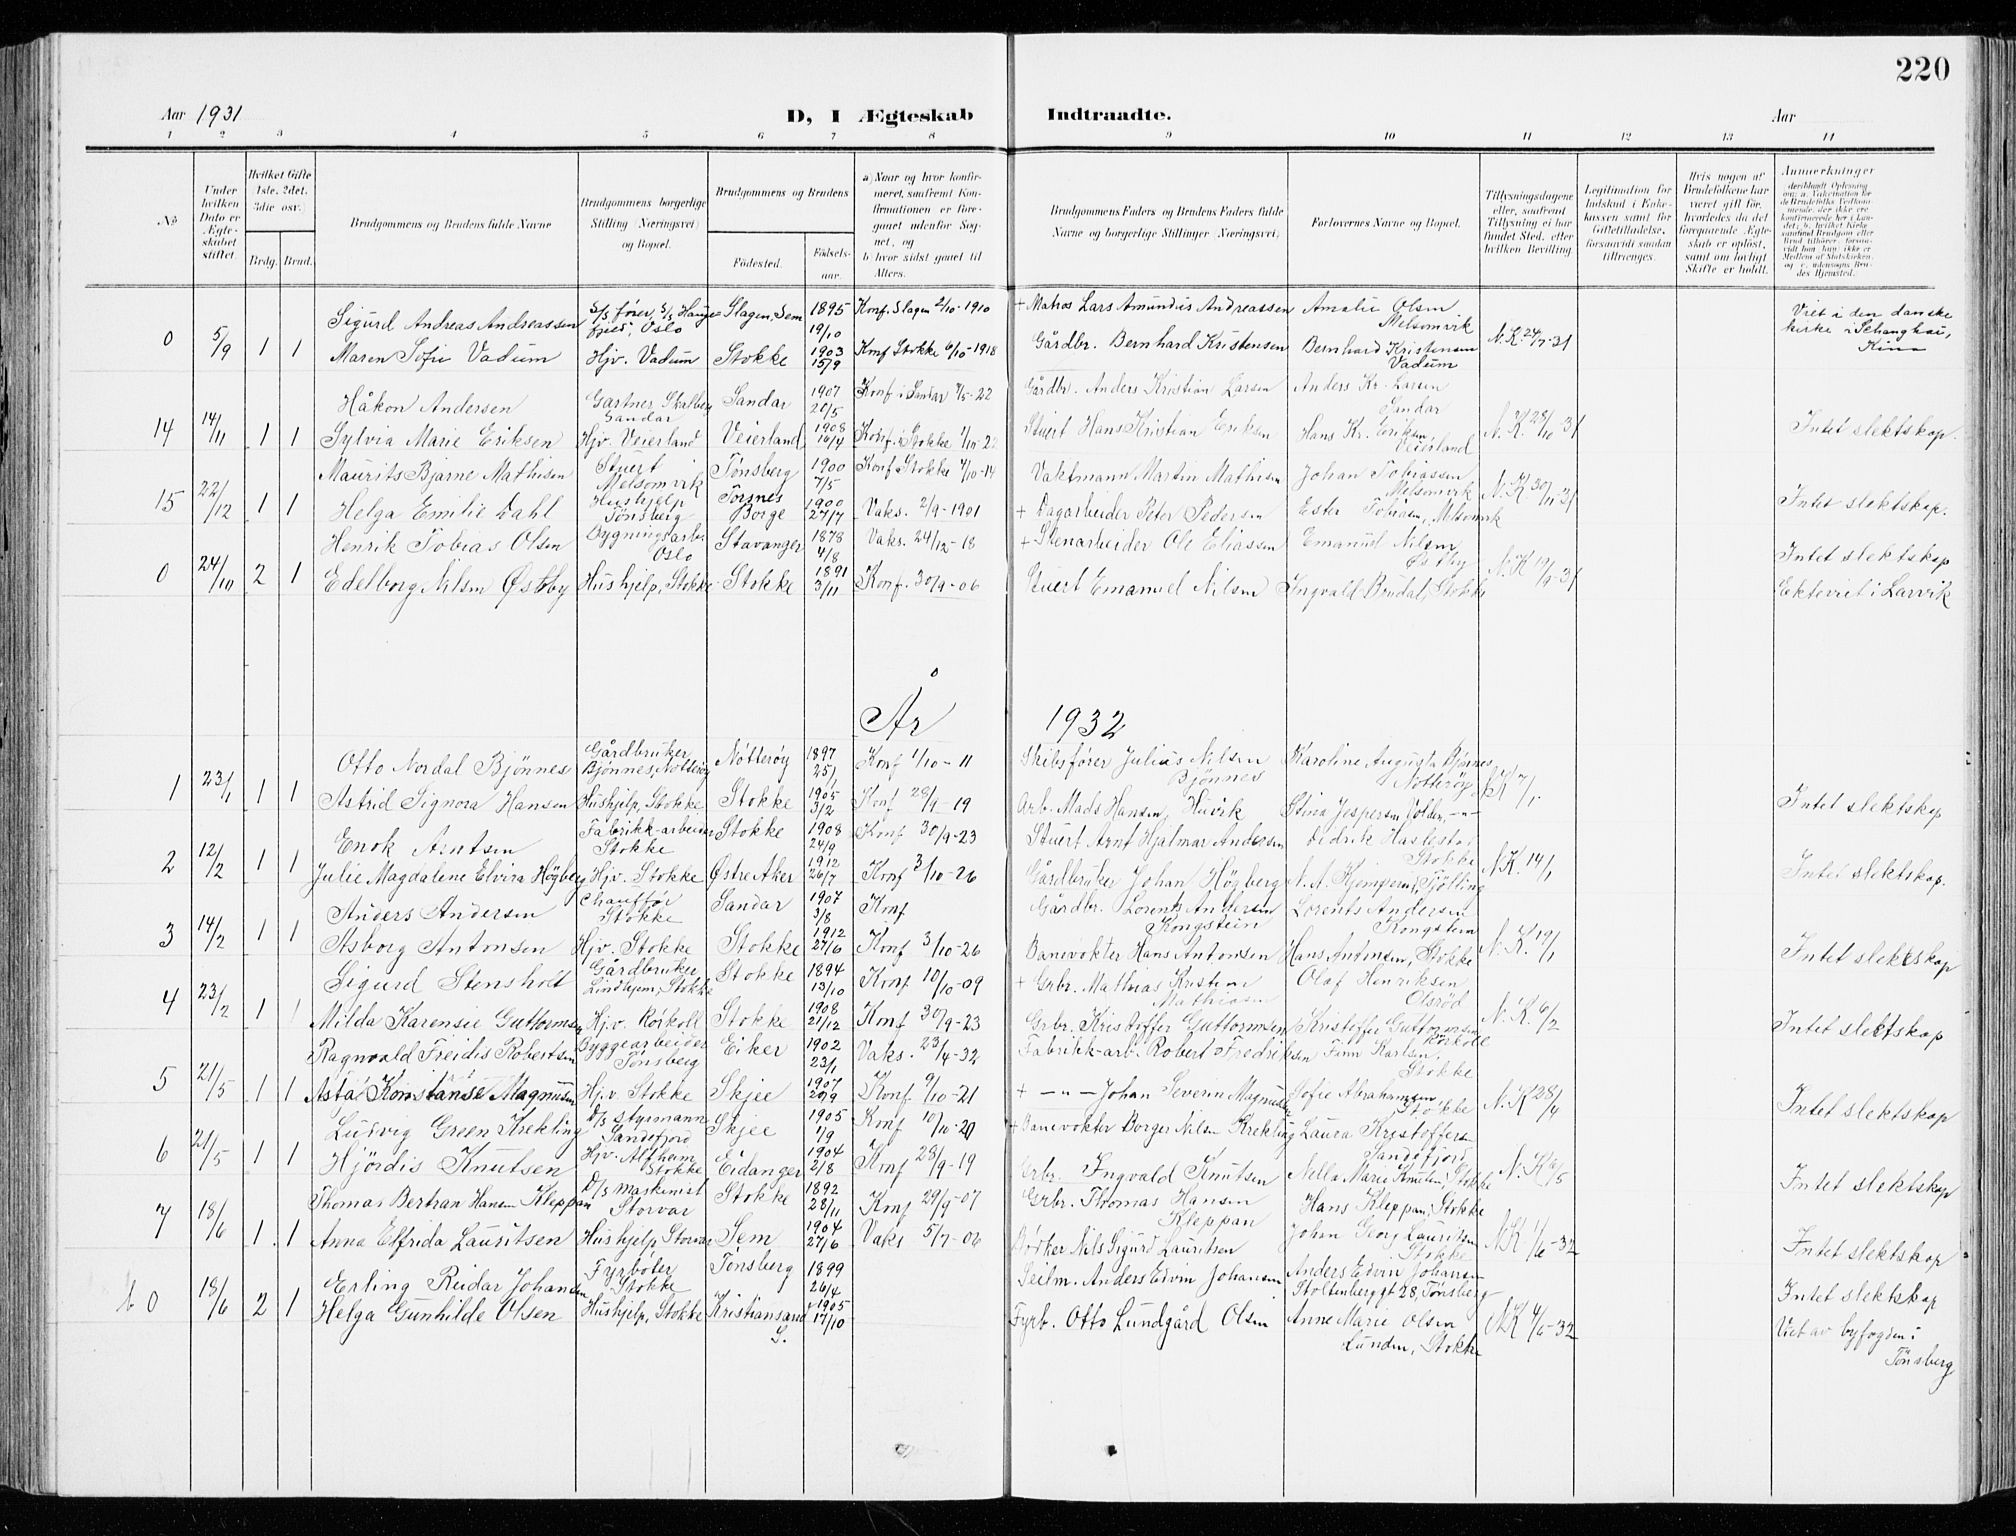 220
Aar 1931 D, I Ægteskab Indtraadte. Aar
1 2 3 4 5 6 7 8 9 10 11 12 13 14
No
Under hvilken Dato er Ægteskabet stiftet.
Hvilket Gifte (1ste, 2det, 3die osv.)
Brdg. Brud.
Brudgommens og Brudens fulde Navne
Brudgommens borgerlige Stilling (Næringsvei) og Bopæl.
Brudgommens og Brudens
Fødested. Fødselsaar.
a) Naar og hvor konfirmeret, saafremt Konfirmationen er foregaaet udenfor Sognet, og b) hvor sidst gaaet til Alters.
Brudgommens Faders og Brudens Faders fulde Navne og borgerlige Stillinger (Næringsvei)
Forlovernes Navne og Bopæl.
Tillysningsdagene eller, saafremt Tillysning ei har fundet Sted, efter hvilken Bevilling.
Legitimation for Indskud i Enkekassen samt for Giftetilladelse, forsaavidt saadan tiltrænges.
Hvis nogen af Brudefolkene har været gift før, hvorledes da det foregaaende Ægteskab er opløst, samt om lovligt Skifte er holdt.
Anmerkninger
Sigurd Andreas Andreassen S/S fører, S/S Haugefjell, Oslo Slagen, Sem 1895 19/10 Konf. Slagen 2/10-1910 + Matros Lars Amundus Andreassen Amalie Olsen Melsomvik Viet i den danske kirke i Schanghai, Kina
0 5/9 1 1 Maren Sofie Vadum Hjv. Vadum Stokke 1903 15/9 Konf Stokke 6/10-1918 Gårdbr. Bernhard Kristensen Bernhard Kristensen Vadum N.K. 24/7-31
Håkon Andersen Gartner Skalberg Sandar Sandar 1907 20/5 Konf i Sandar 7/5-22 Gårdbr. Anders Kristian Larsen Anders Kr. Larsen Sandar
14 14/11 1 1 Sylvia Marie Eriksen Hjv. Veierland Veierland 1908 16/4 Konf. i Stokke 1/10-22 Stuert Hans Kristian Eriksen Hans Kr. Eriksen, Veierland N.K. 28/10 31 Intet slektskap.
Maurits Bjarne Mathisen Stuert Melsomvik Tønsberg 1900 7/5 Konf Stokke 4/10-14 Vaktmann Martin Mathisen Johan Tobiassen Melsomvik
15 22/12 1 1 Helga Emilie Dahl Hushjelp Tønsberg Torsnes Borge 1900 27/7 Vaks. 2/9-1901 + Dagarbeider Peter Pedersen Ester Tobiasen, Melsomvik N.K 30/11-31 Intet slektskap.
Henrik Tobias Olsen Bygningsarb. Oslo Stavanger 1878 4/8 Vaks. 24/12-18 + Stenarbeider Ole Eliassen Emanuel Nilsen Østby Intet slektskap
0 24/10 2 1 Edelborg Nilsen Østby Hushjelp, Stokke Stokke 1891 3/11 Konf. 30/9-06 Stuert Emanuel Nilsen Ingvald Brudal, Stokke N.K 19/9-31 Ekteviet i Larvik
År 1932
Otto Nordal Bjønnes Gårdbruker Bjønnes, Nøtterøy Nøtterøy 1897 25/1 Konf 1/10-11 Skibsfører Julius Nilsen Bjønnes Karoline Augusta Bjønnes Nøtterøy
1 23/1 1 1 Astrid Signora Hansen Hushjelp, Stokke Stokke 1905 3/2 Konf 28/9-19 Arb. Mads Hansen, Huvik Stina Jespersen Volden, -"- N.K 7/1 Intet slektskap
Enok Arntsen Fabrikk-arbeider Stokke Stokke 1908 24/9 Konf 30/9-23 Stuert Arnt Hjalmar Andersen Didrik Haslestad Stokke
2 12/2 1 1 Julie Magdalene Elvira Högberg Hjv. Stokke Østre Aker 1912 26/7 Konf 3/10-26 Gårdbruker Johan Högberg N.K. 14/1 Intet slektskap.
Anders Andersen Chauffør Stokke Sandar 1907 3/8 Konf Gårdbr. Lorents Andersen Kongstein Lorents Andersen Kongstein
3 14/2 1 1 Asborg Antonsen Hjv. Stokke Stokke 1912 27/6 Konf 3/10-26 Banevokter Hans Antonsen Hans Antonsen, Stokke N.K. 19/1 Intet slektskap
Sigurd Stensholt Gårdbruker Lindhjem, Stokke Stokke 1894 13/10 Konf 10/10-09 + Grbr. Mathias Kristian Mathiasen Olaf Henriksen Olsrød
4 23/2 1 1 Milda Karensie Guttormsen Hjv. Rörkoll Stokke 1908 21/12 Konf 30/9-23 Grbr. Kristoffer Guttormsen Kristoffer Guttormsen Rörkoll N.K. 6/2 Intet slektskap
Ragnvald Freidis Robertsen Byggearbeider Tønsberg Eiker 1902 23/1 Vaks. 23/4-32 Fabrikk-arb. Robert Fredriksen Finn Karlsen, Stokke
5 21/5 1 1 Asta Konstanse Magnusen Hjv. Stokke Skjee 1907 20/9 Konf 9/10-21 + -"- Johan Severin Magnusen Sofie Abrahamsen, Stokke N.K 28/4 Intet slektskap
Ludvig Green Krekling D/S styrmann Sandefjord Skjee 1905 1/9 Konf 10/10-20 + Banevokter Borger Nilsen Krekling Laura Kristoffersen Sandefjord
6 21/5 1 1 Hjördis Knutsen Hjv. Alfheim Stokke Eidanger 1904 2/8 Konf 28/9-19 Grbr. Ingvald Knutsen Nella Marie Knutsen, Stokke N.K 9/5 Intet slektskap
Thomas Bertran Hansen Kleppan D/S maskinist Storvar Stokke 1892 28/11 Konf 29/9-07 Grbr. Thomas Hansen Kleppan Hans Kleppan, Stokke
7 18/6 1 1 Anna Elfrida Lauritsen Hushjelp Storvar Sem 1904 27/6 Vaks 5/7-06 Bødker Nils Sigurd Lauritsen Johan Georg Lauritsen Stokke N.K 1/6-32 Intet slektskap
Erling Reidar Johansen Fyrbøter Stokke Tønsberg 1899 26/4 Seilm. Anders Edvin Johansen Anders Edvin Johansen Stoltenberggt 28, Tønsberg Intet slektskap
0 18/6 2 1 Helga Gunhilde Olsen Hushjelp, Stokke Kristiansand S. 1905 17/10 Fyrb. Otto Lundgård Olsen Anne Marie Olsen Lunden, Stokke N.K 4/6-32 Viet av byfogden i Tønsberg